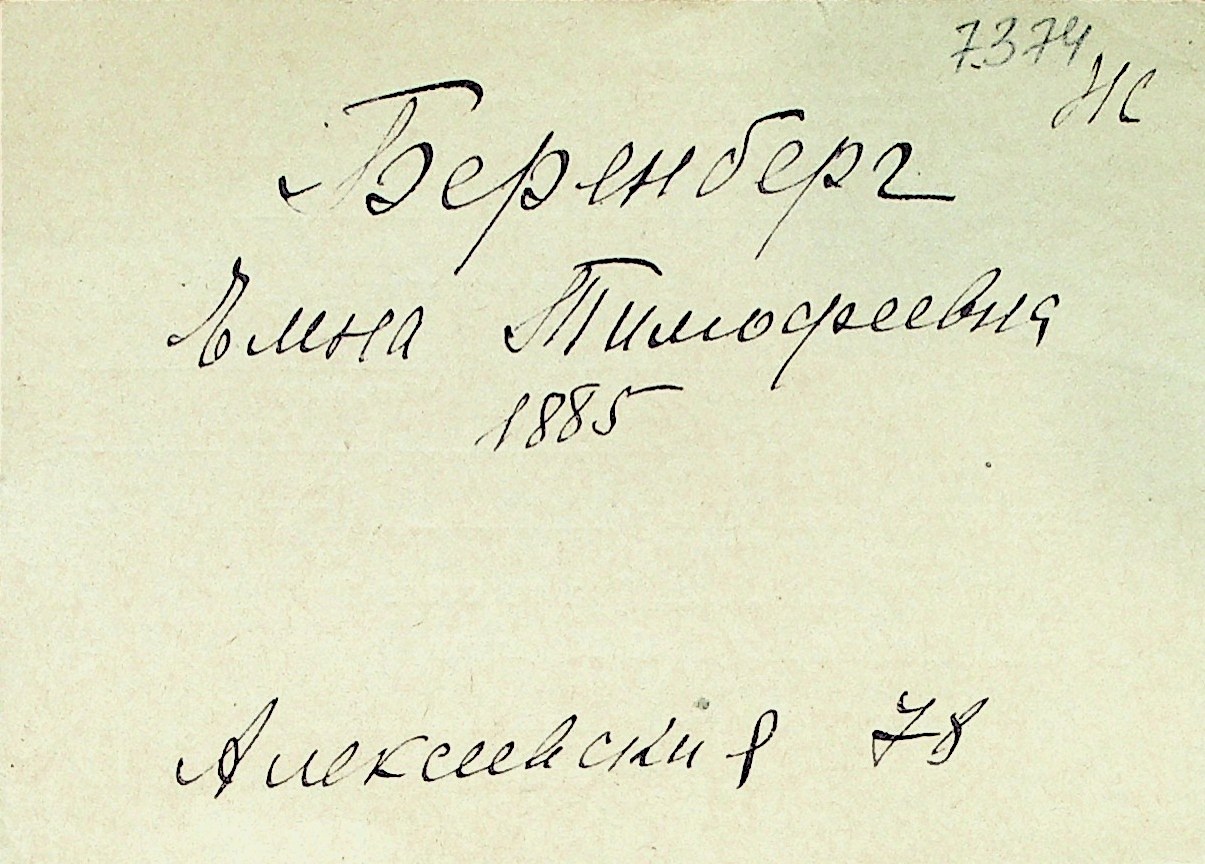 7374
Беренберг
Елена Тимофеевна
1885
Алексеевская 78